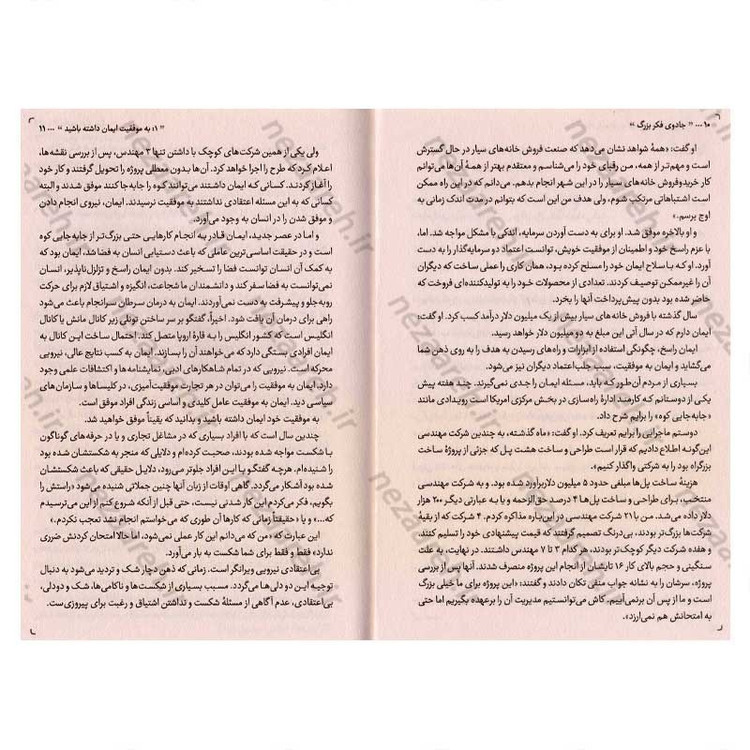 ۱۰ ... " جادوی فکر بزرگ "
او گفت: «همهٔ شواهد نشان می‌دهد که صنعت فروش خانه‌های سیار در حال گسترش
است و مهم‌تر از همه، من رقبای خود را می‌شناسم و معتقدم بهتر از همهٔ آن‌ها می‌توانم
کار خریدوفروش خانه‌های سیار را در این شهر انجام بدهم. می‌دانم که در این راه ممکن
است اشتباهاتی مرتکب شوم، ولی هدف من این است که بتوانم در مدت اندک زمانی به
اوج برسم.»
و او بالاخره موفق شد. او برای به دست آوردن سرمایه، اندکی با مشکل مواجه شد. اما،
با عزم راسخ خود و اطمینان از موفقیت خویش، توانست اعتماد دو سرمایه‌گذار را به دست
آورد. او که با سلاح ایمان خود را مسلح کرده بود، همان کاری را عملی ساخت که دیگران
آن را غیرممکن توصیف کردند. تعدادی از محصولات خود را به تولیدکننده‌ای فروخت که
حاضر شده بود بدون پیش‌پرداخت آنها را بخرد.
سال گذشته با فروش خانه‌های سیار بیش از یک میلیون دلار درآمد کسب کرد. او گفت:
ایمان دارم که در سال آتی این مبلغ به دو میلیون دلار خواهد رسید.
ایمان راسخ، چگونگی استفاده از ابزارات و راه‌های رسیدن به هدف را به روی ذهن شما
می‌گشاید و ایمان به موفقیت، سبب جلب‌اعتماد دیگران نیز می‌شود.
بسیاری از مردم آن‌طور که باید، مسئله ایمان را جدی نمی‌گیرند. چند هفته پیش
یکی از دوستانم که کارمند ادارهٔ راه‌سازی در بخش مرکزی امریکا است رویدادی مانند
«جابه‌جایی کوه» را برایم شرح داد.
دوستم ماجرایی را برایم تعریف کرد. او گفت: «ماه گذشته، به چندین شرکت مهندسی
این‌گونه اطلاع دادیم که قرار است ساخت و طراحی ساخت هشت پل که جزئی از پروژهٔ ساخت
بزرگراه بود را به شرکتی واگذار کنیم».
هزینهٔ ساخت پل‌ها مبلغی حدود ۵ میلیون دلار برآورد شده بود. و به شرکت مهندسی
منتخب، برای طراحی و ساخت پل‌ها ۴ درصد حق‌الزحمه و یا به عبارتی دیگر ۲۰۰ هزار
دلار داده می‌شد. من با ۲۱ شرکت مهندسی در این‌باره مذاکره کردم. ۴ شرکت که از بقیهٔ
شرکت‌ها بزرگ‌تر بودند، بی‌درنگ تصمیم گرفتند که قیمت پیشنهادی خود را تسلیم کنند.
و هفده شرکت دیگر کوچک‌تر بودند، هر کدام ۳ تا ۷ مهندس داشتند. در نهایت، به علت
سنگینی و حجم بالای کار ۱۶ تایشان از انجام این پروژه منصرف شدند. آنها پس از بررسی
پروژه، سرشان را به نشانه جواب منفی تکان دادند و گفتند: «این پروژه برای ما خیلی بزرگ
است و ما از پس آن برنمی‌آییم. کاش می‌توانستیم مدیریت آن را برعهده بگیریم اما حتی
به امتحانش هم نمی‌ارزد».
" ۱؛ به موفقیت ایمان داشته باشید " ... ۱۱
ولی یکی از همین شرکت‌های کوچک با داشتن تنها ۳ مهندس، پس از بررسی نقشه‌ها،
اعلام کرد که طرح را اجرا خواهد کرد. آن‌ها بدون معطلی پروژه را تحویل گرفتند و کار خود
را آغاز کردند. کسانی که ایمان داشتند می‌توانند کوه را جابه‌جا کنند موفق شدند و البته
کسانی که به این مسئله اعتقادی نداشتند به موفقیت نرسیدند. ایمان، نیروی انجام دادن
و موفق شدن را در انسان به وجود می‌آورد.
و اما در عصر جدید، ایمان قادر به انجام کارهایی حتی بزرگ‌تر از جابه‌جایی کوه
است و در حقیقت اساسی‌ترین عاملی که باعث دستیابی انسان به فضا شد، ایمان بود که
به کمک آن انسان توانست فضا را تسخیر کند. بدون ایمان راسخ و تزلزل‌ناپذیر، انسان
نمی‌توانست به فضا سفر کند و دانشمندان ما شجاعت، انگیزه و اشتیاق لازم برای حرکت
رو به جلو و پیشرفت به دست نمی‌آوردند. ایمان به درمان سرطان سرانجام باعث می‌شود
راهی برای درمان آن یافت شود. اخیراً، گفتگو بر سر ساختن تونلی زیر کانال مانش یا کانال
انگلیس است که کشور انگلیس را به قارهٔ اروپا متصل کند. احتمال ساخت این کانال به
ایمان افرادی بستگی دارد که می‌خواهند آن را بسازند. ایمان به کسب نتایج عالی، نیرویی
محرکه است. نیرویی که در تمام شاهکارهای ادبی، نمایشنامه‌ها و اکتشافات علمی وجود
دارد. ایمان به موفقیت را می‌توان در هر تجارت موفقیت‌آمیزی، در کلیساها و سازمان‌های
سیاسی دید. ایمان به موفقیت عامل کلیدی و اساسی زندگی افراد موفق است.
به موفقیت خود ایمان داشته باشید و بدانید که یقیناً موفق خواهید شد.
چندین سال است که با افراد بسیاری که در مشاغل تجاری و یا در حرفه‌های گوناگون
با شکست مواجه شده بودند، صحبت کرده‌ام و دلایلی که منجر به شکستشان شده بود
را شنیده‌ام. هرچه گفتگو با این افراد جلوتر می‌رود، دلایل حقیقی که باعث شکستشان
شده بود آشکار می‌گردد. گاهی اوقات از زبان آنها چنین جملاتی شنیده می‌شود «راستش را
بگویم، فکر می‌کردم این کار شدنی نیست، حتی قبل از آنکه شروع کنم از این می‌ترسیدم
که...» و یا «حقیقتاً زمانی که کارها آن طوری که می‌خواستم انجام نشد تعجب نکردم.»
این عبارت که «من که می‌دانم این کار عملی نمی‌شود، اما حالا امتحان کردنش ضرری
ندارد» فقط و فقط برای شما شکست به بار می‌آورد.
بی‌اعتقادی نیرویی ویرانگر است. زمانی که ذهن دچار شک و تردید می‌شود به دنبال
توجیه این دو دلی‌ها می‌گردد. مسبب بسیاری از شکست‌ها و ناکامی‌ها، شک و دودلی،
بی‌اعتقادی، عدم آگاهی از مسئلهٔ شکست و نداشتن اشتیاق و رغبت برای پیروزی‌ست.
nezareh.ir